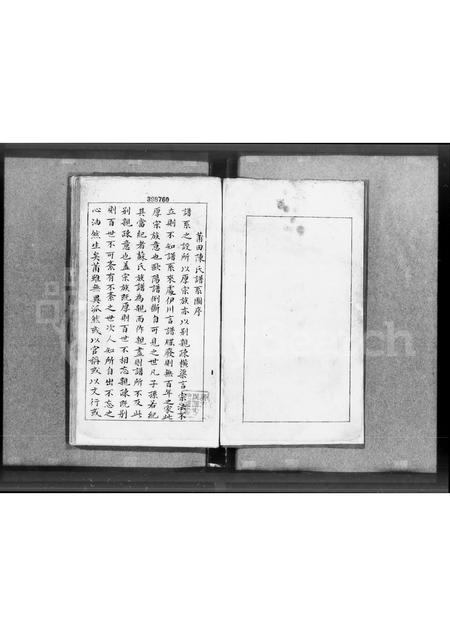 398760
莆田陳氏譜系圖序
譜系之設所以厚宗族亦以别親踈橫渠言宗法不
立則不知譜系來處伊川言譜牒廢則無百年之家此
厚宗族意也歐陽譜例斷自可見之世凡子孫若紀
其當紀者蘇氏族譜為親而作親盡則譜所不及此
别親踈意也盖宗族既厚則百世不相忘親踈既别
則百世不可紊有不紊之世次人知所自出不忘之
心油然生矣莆雖無異派然或以官稱或以文行或